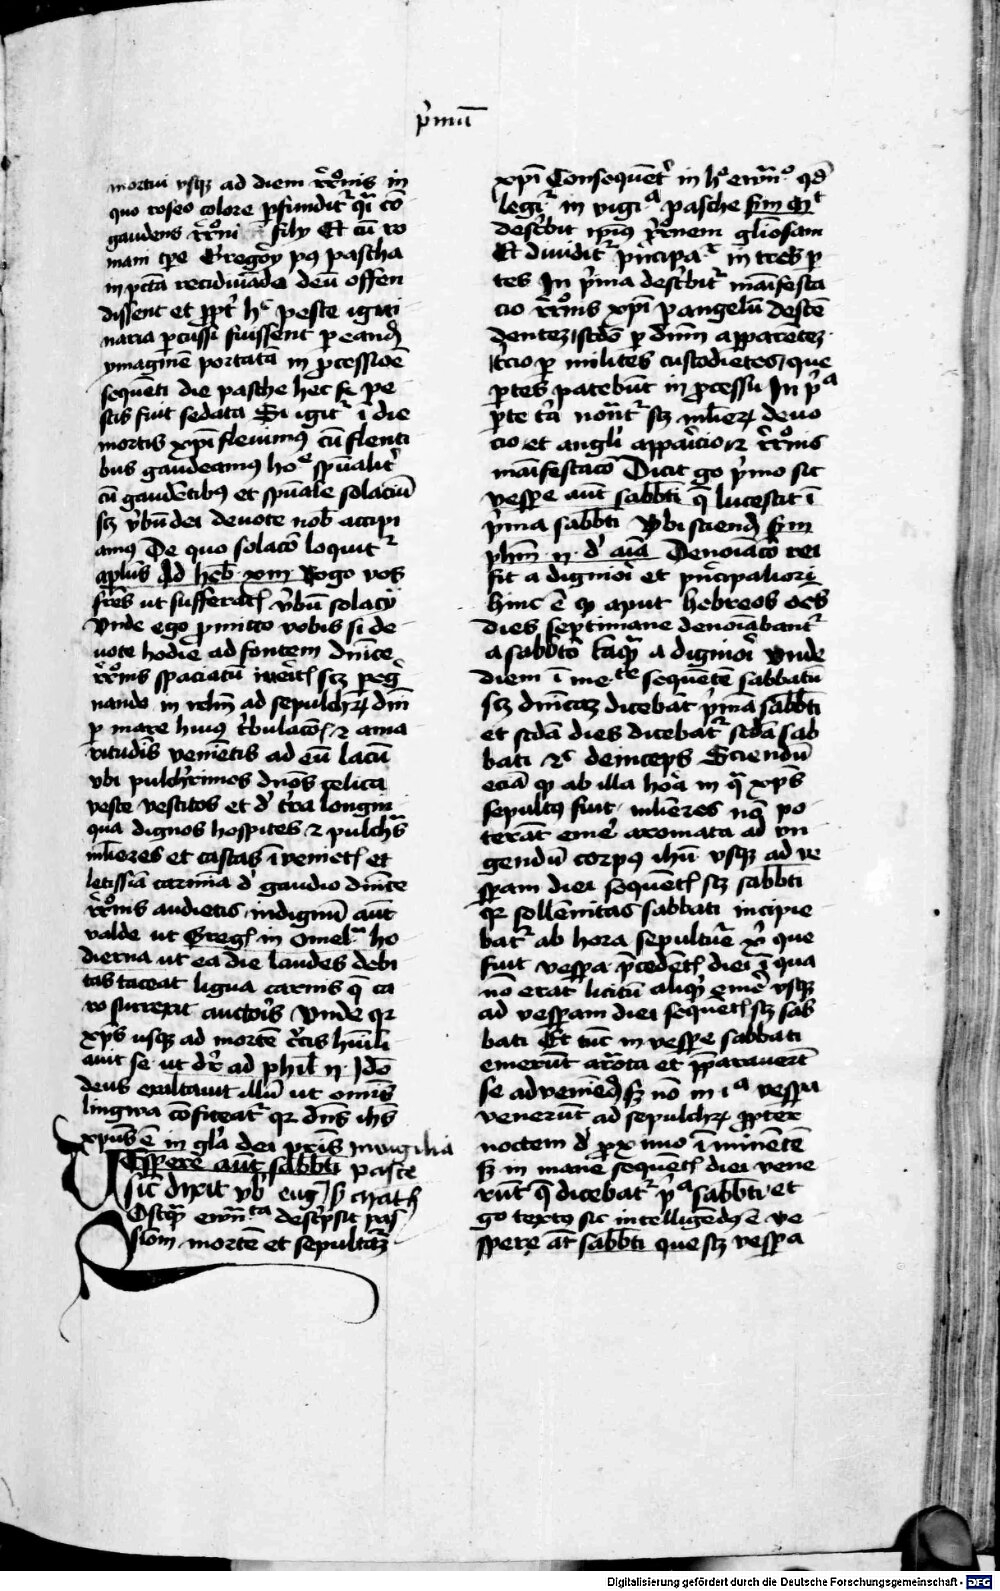 p̓mū
mortui vsqꝫ ad diem rr̄onis in
quo roseo colore pfundit᷑ qꝛ cō
gaudens rr̄oni filij Et cū ro
mani tpe Gregorij pꝰ pascha
in pctā recidiuādo deū offen
dissent et ꝓpt̓ hͨ peste igni
naria pcussi fuissent p eandē
ymaginē portatā in pcessiōe
sequēti die pasche hec pe
stis fuit sedata Si igit᷑ ī die
mortis xp̄i fleuimꝰ cū flenti
bus gaudeamꝰ hoͤ spūalit̓
cū gaudētibꝰ et spūale solaciū
scꝫ ṽbū dei deuote nob̄ accipi
amꝰ De quo solaco̅ loquit᷑
apl̄us Ad heb̄ xiii Rogo vos
fr̄es ut sufferatꝭ ṽbū solacij
Vnde ego pmitto vobis si de
uote hodie ad fontem dn̄ice
rr̄onis spaciatū iueritꝭ scꝫ peg̓
nando in ad sepulchꝝ dn̄i
p mare huiꝰ t̓bulacōis ⁊ ama
ritudīs venietis ad eū lacū
vbi pulch̓rimos dn̄os celica
veste vestitos et d̓ t̓ra longin
qua dignos hospites ⁊ pulch̓s
ml̄ieres et castas īvenietꝭ et
letissiā carmīa d̓ gaudio dn̄ice
rr̄onis audietis indignū aūt
valde ut Gregꝭ in omel᷑ ho
dierna ut ea die laudes debi
tas taceat ligua carnis q̄ ca
ro surrexit auctoris Vnde qꝛ
xp̄s usqꝫ ad mortē c̓cis hūili
auit se ut dr̄ ad phil̄ ii Ido̅
deus exaltauit illū ut omīs
lingwa cōfiteat᷑ qꝛ dn̄s ih̄s
xpūs ē in gl̓a dei pr̄is In uigilia
Espere aūt sabb̄ti pasce
sic dixit vb̓ eug᷑ s mathꝭ
Ostꝙ̄ ewn̄ᵗᵃ desc̓psit pas
siom mortē et sepultur̄ā
xp̄i Consequēt̓ in hͦ ewn̄ͦ qd̄
legi᷑ in vigiᵃ pasche scd̄m Mᵗ
desc̓bit ipiꝰ rr̄onem gl̄iosam
Et diuidit᷑ pn̓cipaᷣ in tres p
tes In p̓ma desc̓bit᷑ maīfesta
cio rr̄onis xp̄i p angelū descē
dentez scd̄o p dn̄m apparētez
t̓cio p milites custodietes que
ptes patebūt in pcessu In p̓ᵃ
pte t̓a nonāt᷑ scꝫ ml̄ieꝝ deuo
cio et angl̓i app̓icio ⁊ rr̄onis
maīfestaco̅ Dicit go p̓mo sic
vespe aūt sabb̄ti q̄ lucescit ī
p̓ma sabb̄ti Vbi sciend̄ scd̄m
ph̄m ii d̓ aīa Denoīaco̅ rei
fit a dignioi̓ et pn̓cipaliori
hinc ē ꝙ aput hebreos oēs
dies septimane denoīabant᷑
a sabb̄to taꝙ̄ a dignioi̓ Vnde
diem īmeᵗᵉ sequētē sabbatū
scꝫ dn̄icaꝫ dicebāt p̓mā sabb̄ti
et scd̄a dies dicebat᷑ scd̄a sab
bati ⁊c̄ deinceps Sciendū
eciā ꝙ ab illa hoa̓ in q̄ xp̄s
sepultꝰ fuit ml̄ieres nō po
terāt eme̓ aromata ad vn
gendū corpꝰ ih̄u vsqꝫ ad ve
spam diei sequētꝭ scꝫ sabb̄ti
qꝛ sollēnitas sabbati incipie
bat᷑ ab hora sepultur̄e xͥ que
fuit vespa p̄cedētꝭ diei ī qua
nō erat licitū aliqͥd eme̓ vsqꝫ
ad vespam diei sequētꝭ scꝫ sab
bati Et tūc in vespe sabbati
emerūt aro̅ta et p̄parauerūt
se ad veniēdꝭ sꝫ nō in iᵃ vespa
venerūt ad sepulchꝝ ꝓpter
noctem d̓ pximo īminētē
sꝫ in mane sequētꝭ diei vene
rūt q̄ dicebat᷑ p̓ᵃ sabb̄ti et
go textꝰ sic intelligēdꝰ ē ve
spere āt sabb̄ti que scꝫ vespa
Digitalisierung gefördert durch die Deutsche Forschungsgemeinschaft - DFG